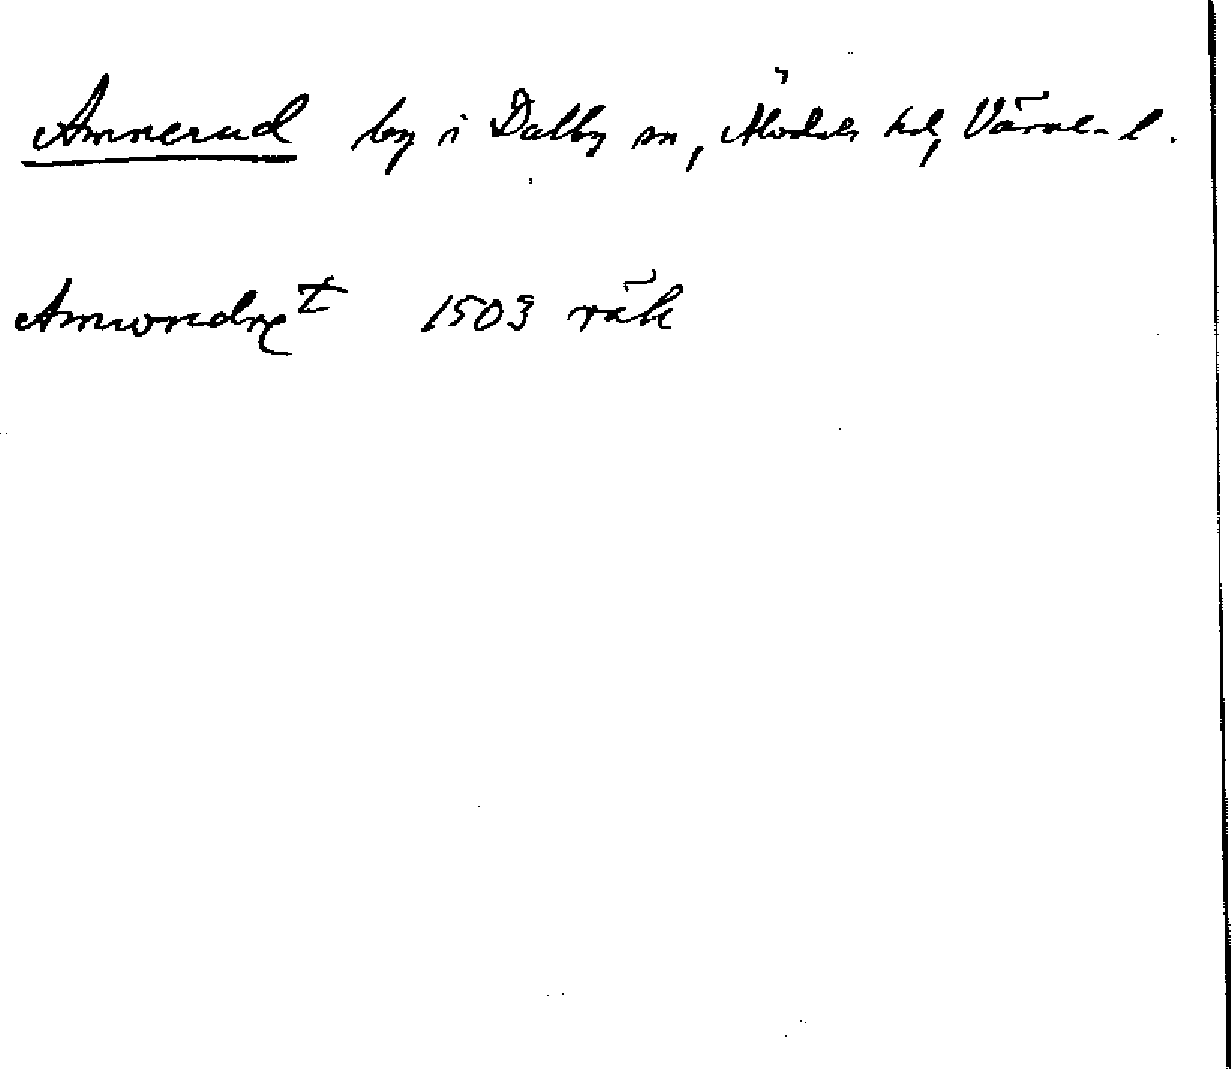 Amnerud by i Dalby sn, Älvdals hd, Värml. l.
Amwndrt 1503 räk